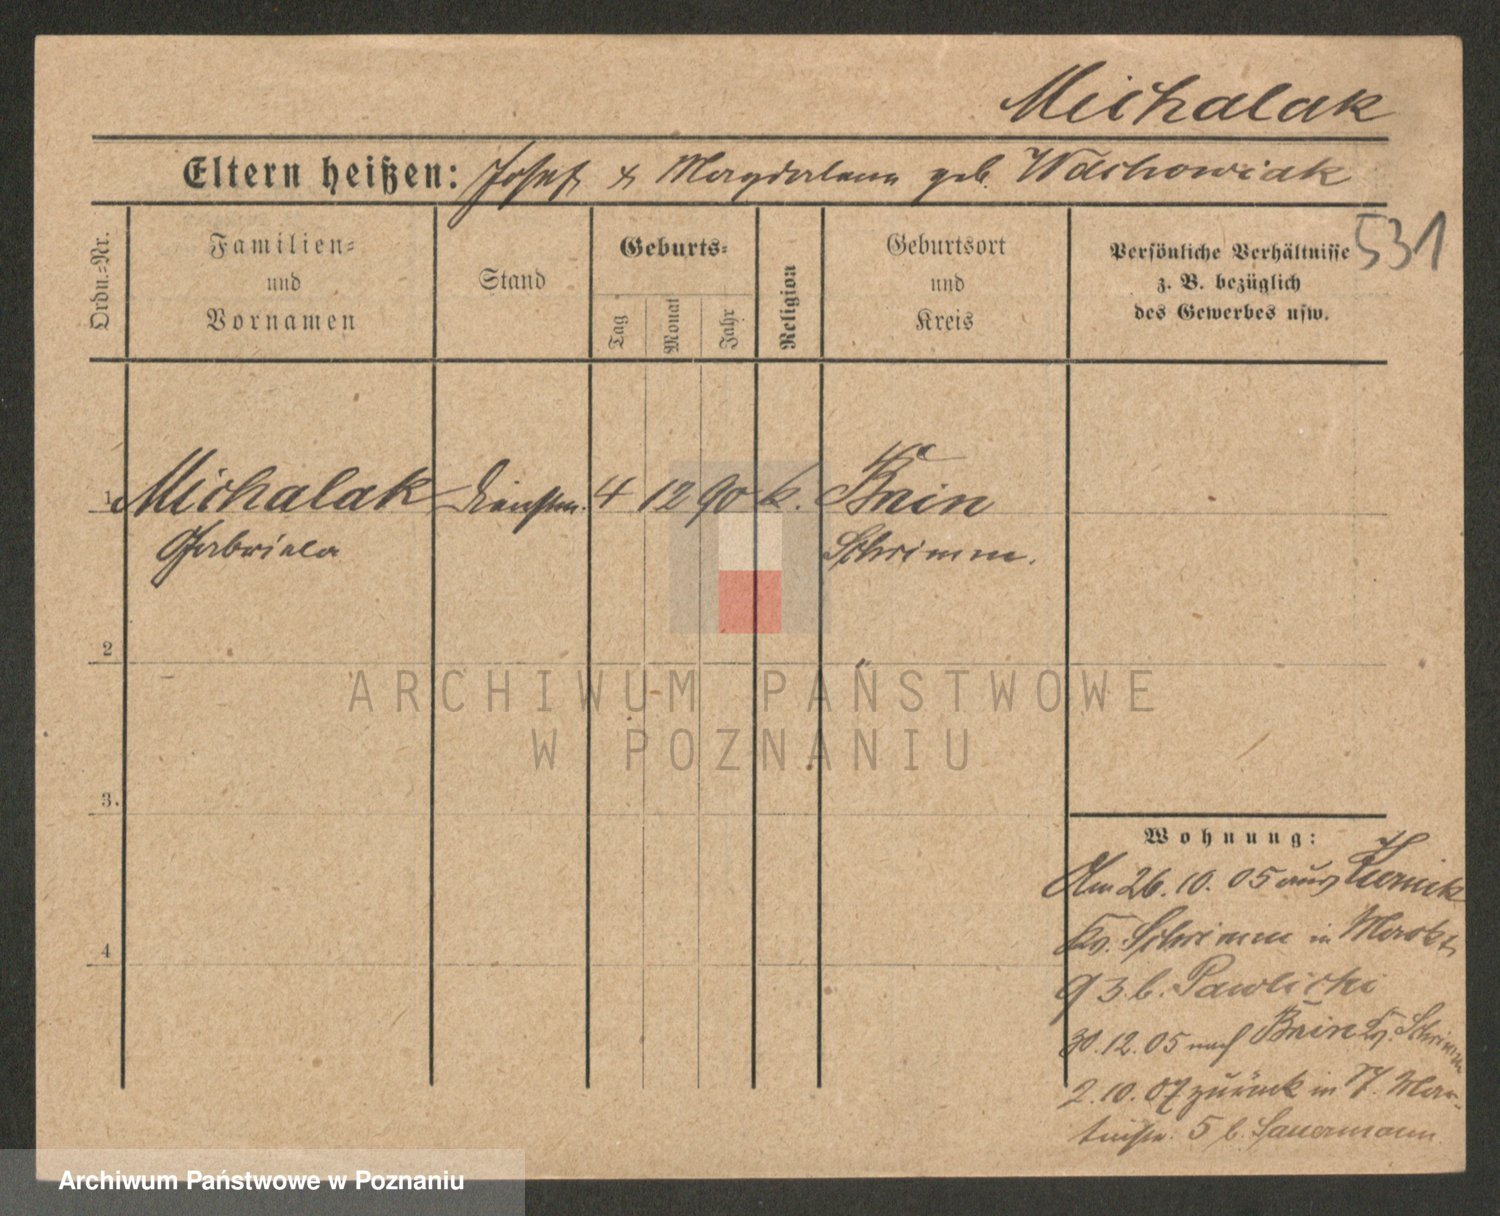 Michalak
Eltern heißen: Josef & Magdalena geb. Wachowiak
531
Ordn.=Nr.
Familien=
und
Vornamen
Stand
Geburts=
Tag
Monat
Jahr
Religion
Geburtsort
und
Kreis
Persönliche Verhältnisse
z. B. bezüglich
des Gewerbes usw.
1 Michalak Dienstm. 4 12 90 k. Bnin
Gabriela Schrimm.
2
3.
4
ARCHIWUM PAŃSTWOWE
W POZNANIU
Wohnung:
Am 26. 10. 05 aus Kurnik
Kr. Schrimm in Markt
93 b. Pawlicki
30. 12. 05 nach Bnin Kr. Schrimm
2. 10. 07 zurück in
5 b. Sauermann
Archiwum Państwowe w Poznaniu